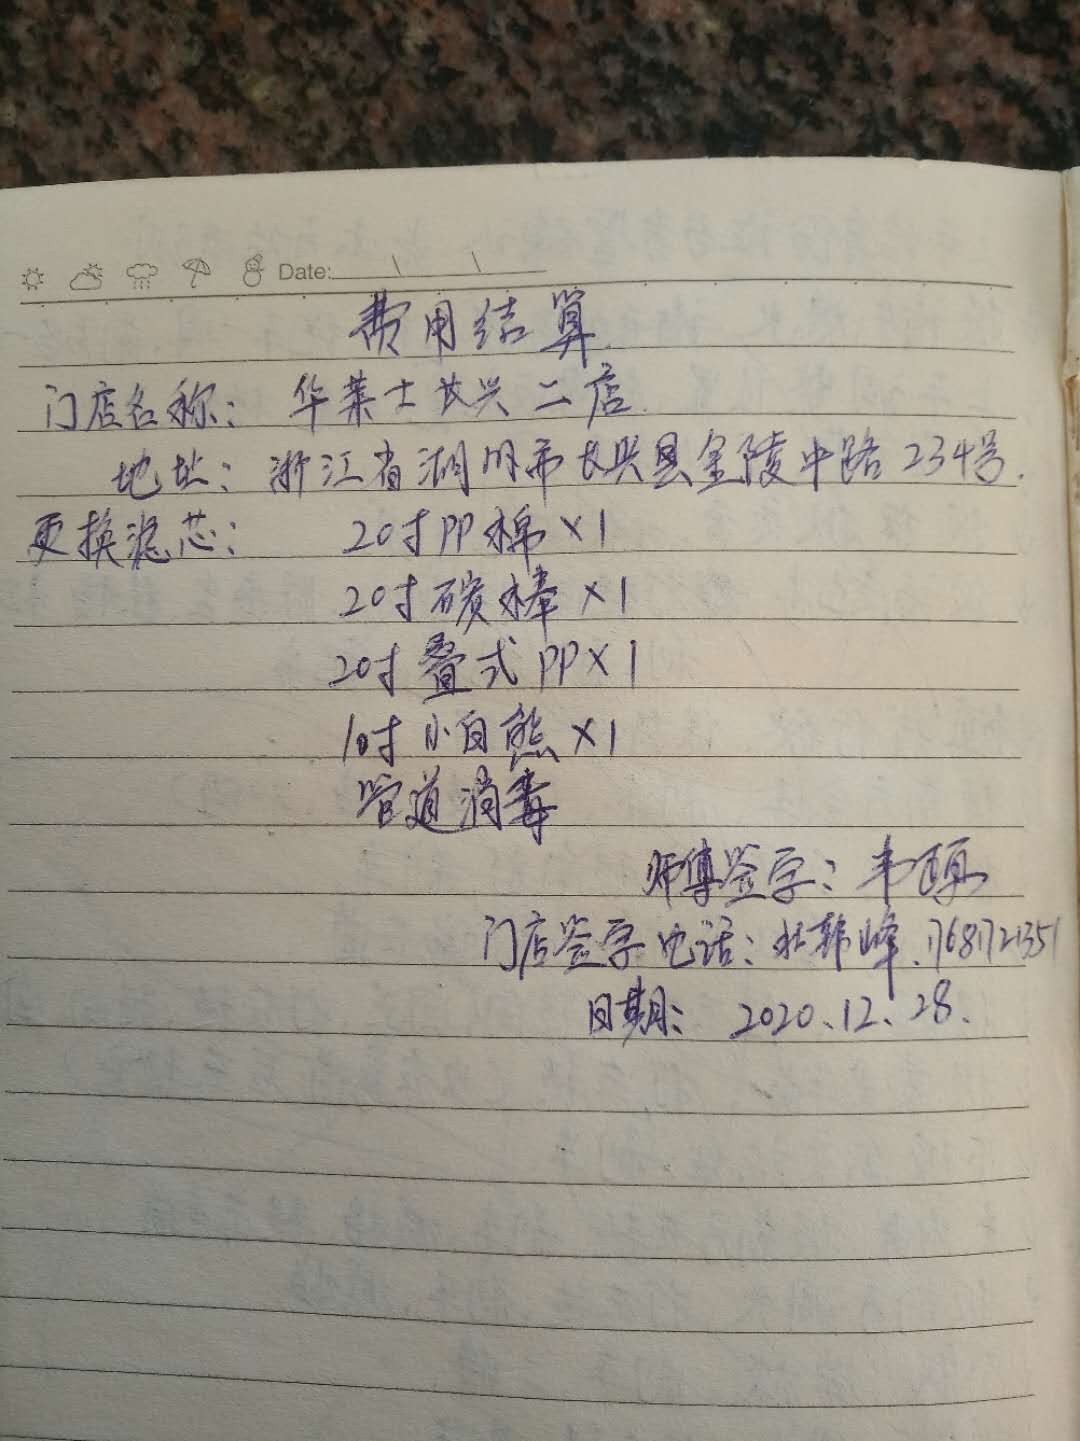 Date:
费用结算
门店名称：华莱士长兴二店.
地址：浙江省湖州市长兴县金陵中路234号.
更换滤芯：20寸PP棉×1
20寸碳棒×1
20寸叠式PP×1
10寸小白熊×1
管道消毒
师傅签字：韦
门店签字电话：杜韩峰.17681721351
日期：2020.12.28.